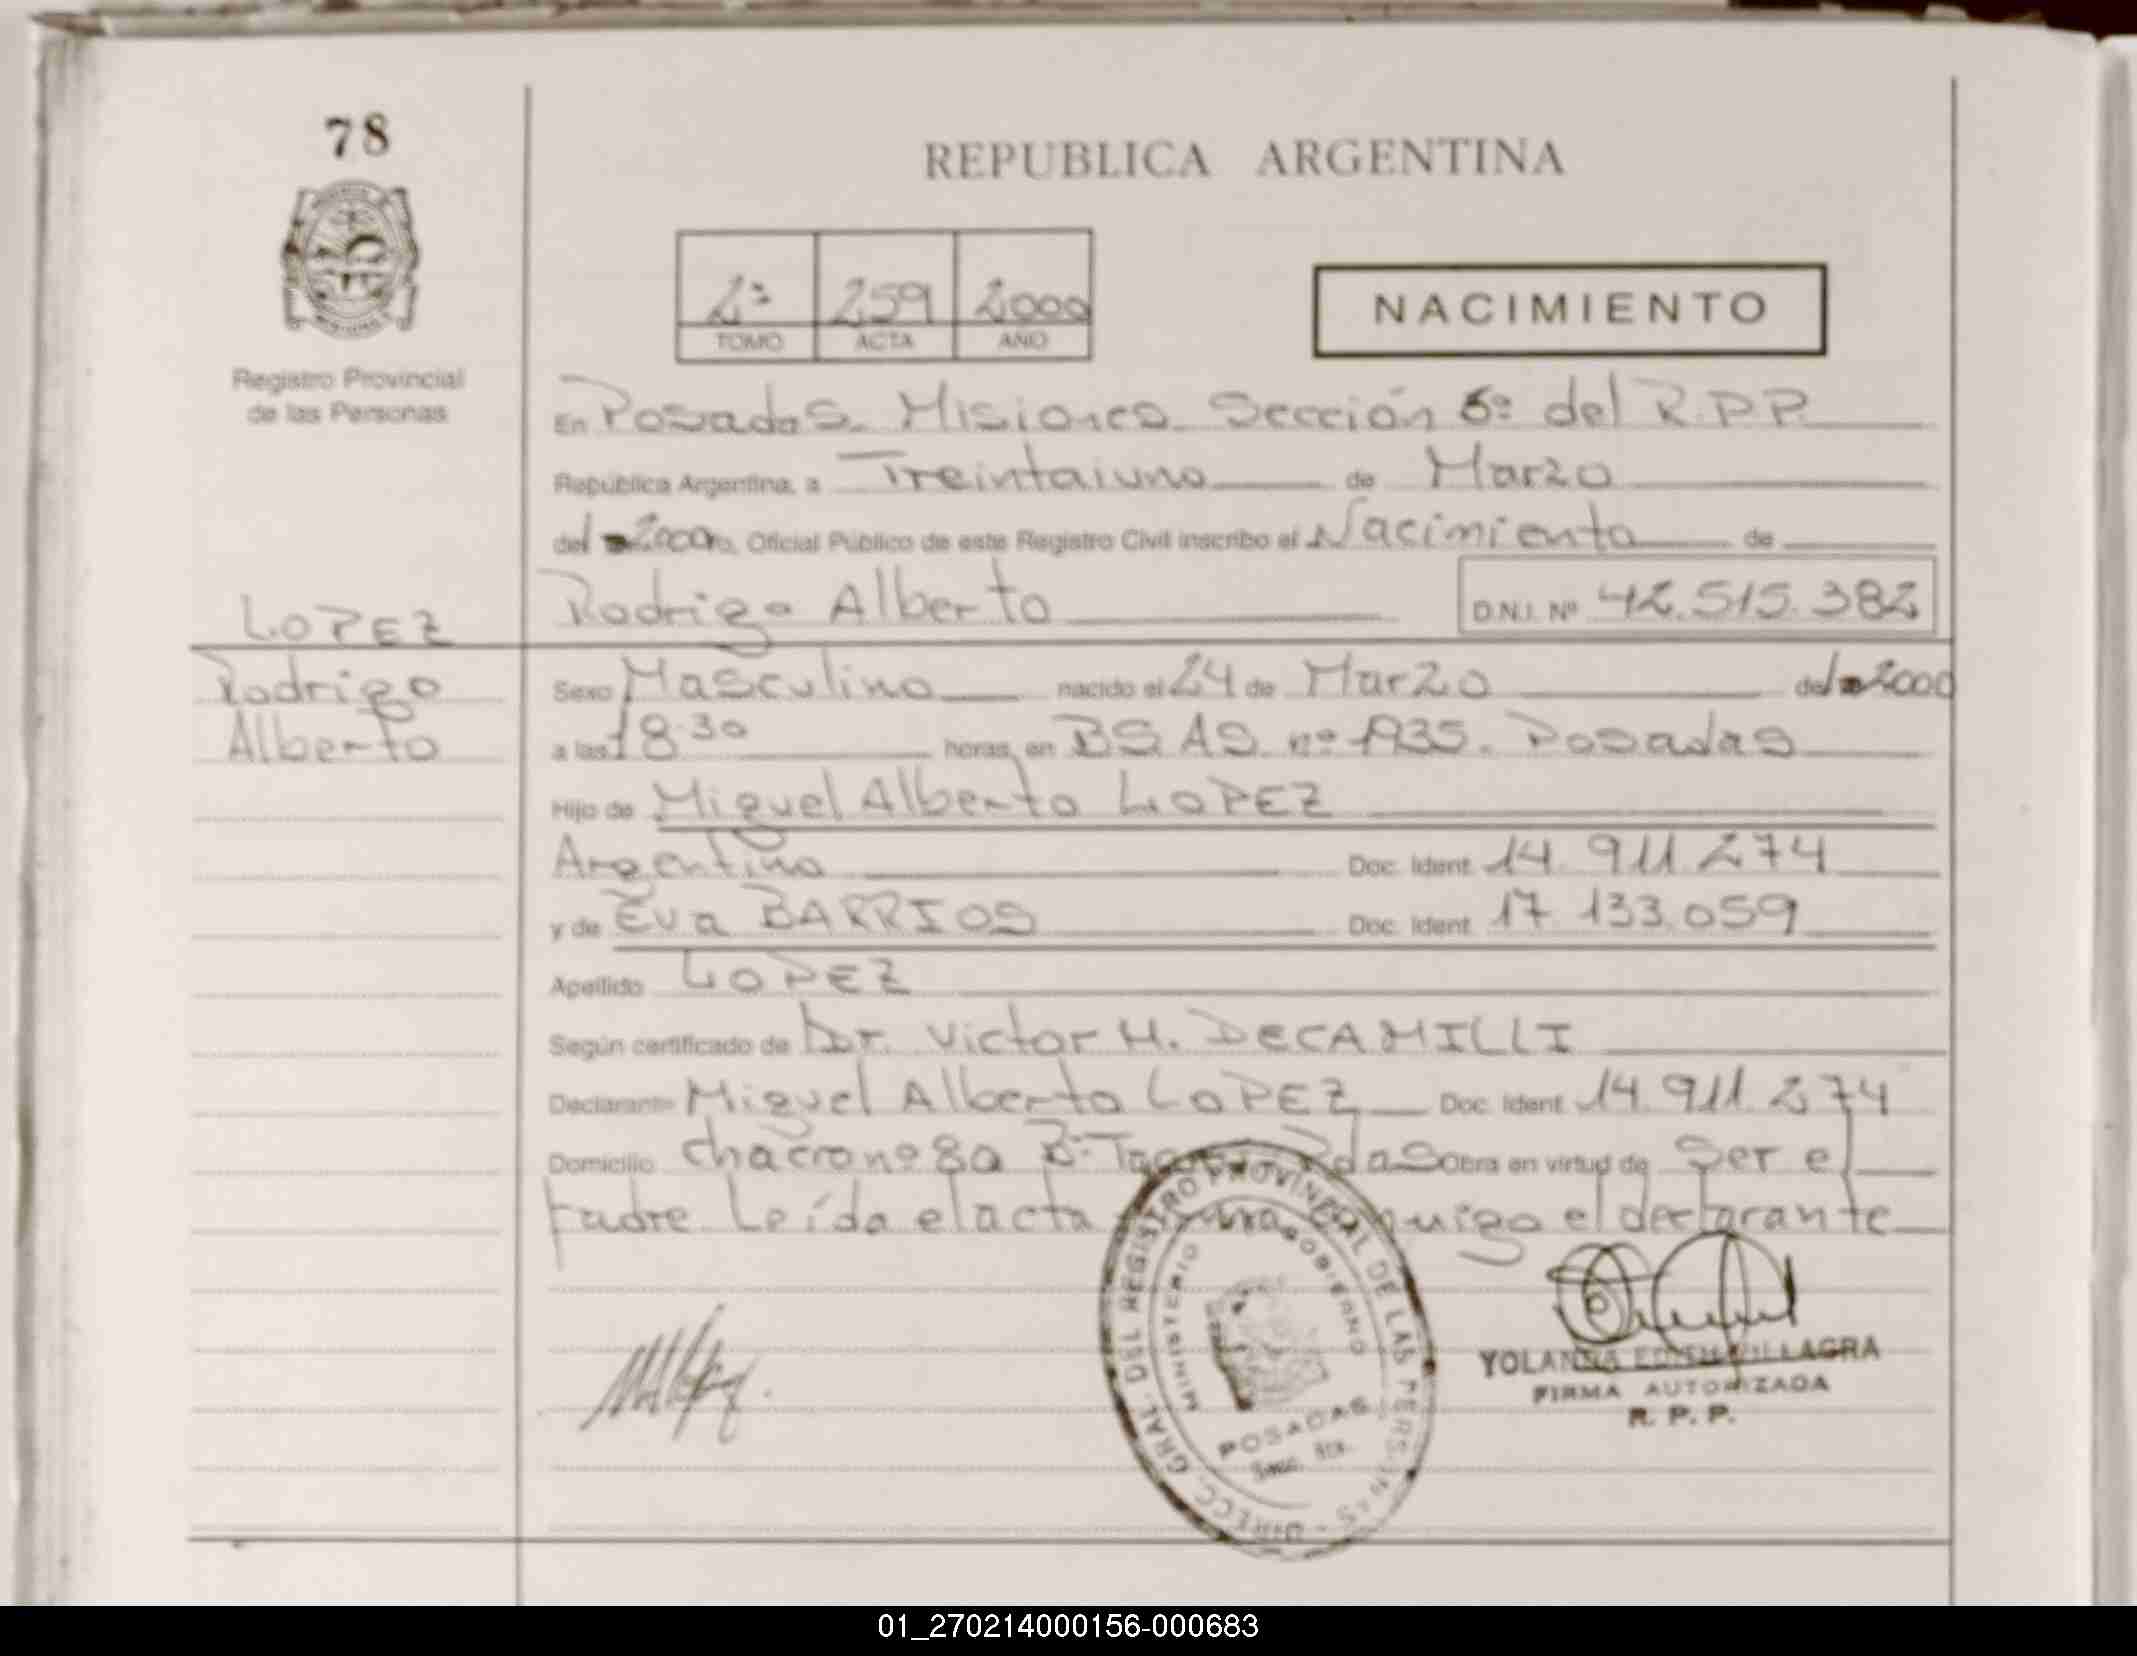 78
REPUBLICA ARGENTINA
Registro Provincial
de las Personas
2º 259 2000
TOMO ACTA AÑO
NACIMIENTO
En Posadas. Misiones Sección 6º del R.P.P.
República Argentina, a Treintaiuno de Marzo
del 2000 Oficial Público de este Registro Civil inscribo el Nacimiento de
Rodrigo Alberto D.N.I. Nº 42.515.382
LOPEZ
Rodrigo
Alberto
Sexo Masculino nacido el 24 de Marzo del 2000
a las 18.30 horas, en BS AS nº 1935. Posadas
Hijo de Miguel Alberto LOPEZ
Argentino Doc. Ident. 14.911.274
y de Eva BARRIOS Doc. Ident. 17.133.059
Apellido LOPEZ
Según certificado de Dr. Victor H. DECAMILLI
Declarante Miguel Alberto LOPEZ Doc. Ident. 14.911.274
Domicilio Chacra nº 80 Bº Pdas Obra en virtud de Ser el
padre Leída el acta el declarante
DIRECC. GRAL. DEL REGISTRO PROVINCIAL DE LAS PERSONAS
MINISTERIO GOBIERNO
POSADAS
Secc.
YOLANDA EDITH VILLAGRA
FIRMA AUTORIZADA
R. P. P.
01_270214000156-000683